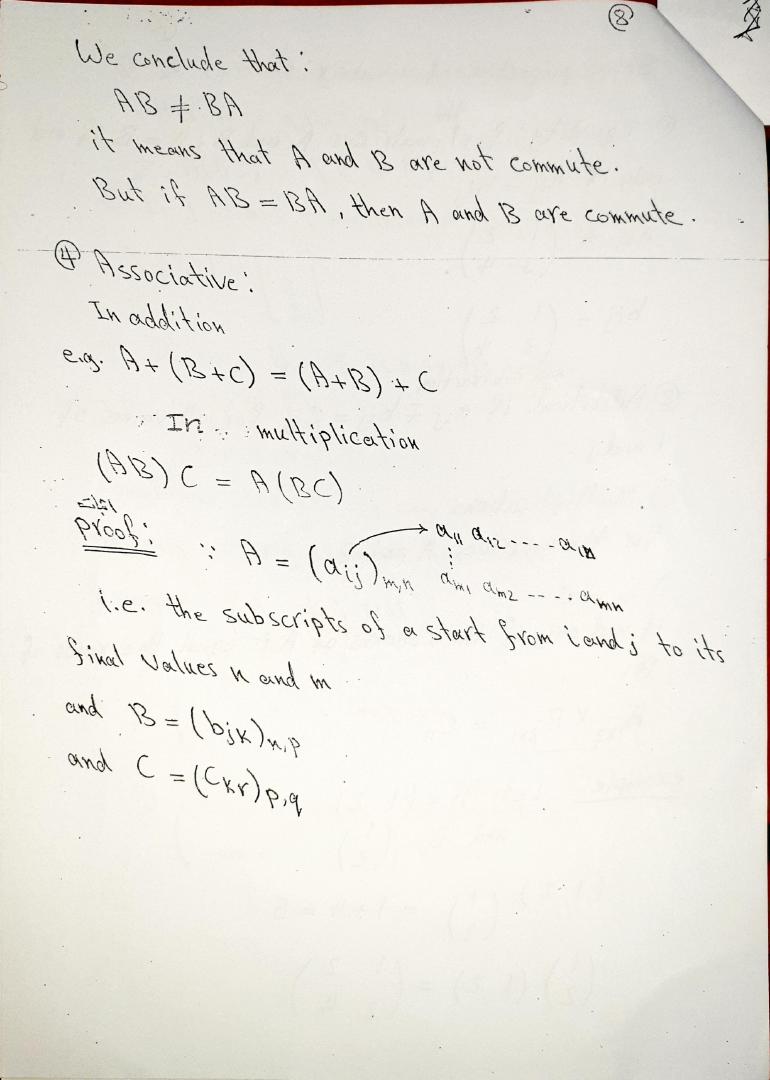 ⑧
We conclude that :
AB ≠ BA
it means that A and B are not commute.
But if AB = BA, then A and B are commute.
④ Associative :
In addition
e.g. A + (B+C) = (A+B) + C
In multiplication
(AB) C = A (BC)
اثبات
proof :
∵ A = (aij)m,n → a11 a12 ---- a1n
⋮
am1 am2 ---- amn
i.e. the subscripts of a start from i and j to its
final values n and m
and B = (bjk)n,p
and C = (Ckr)p,q